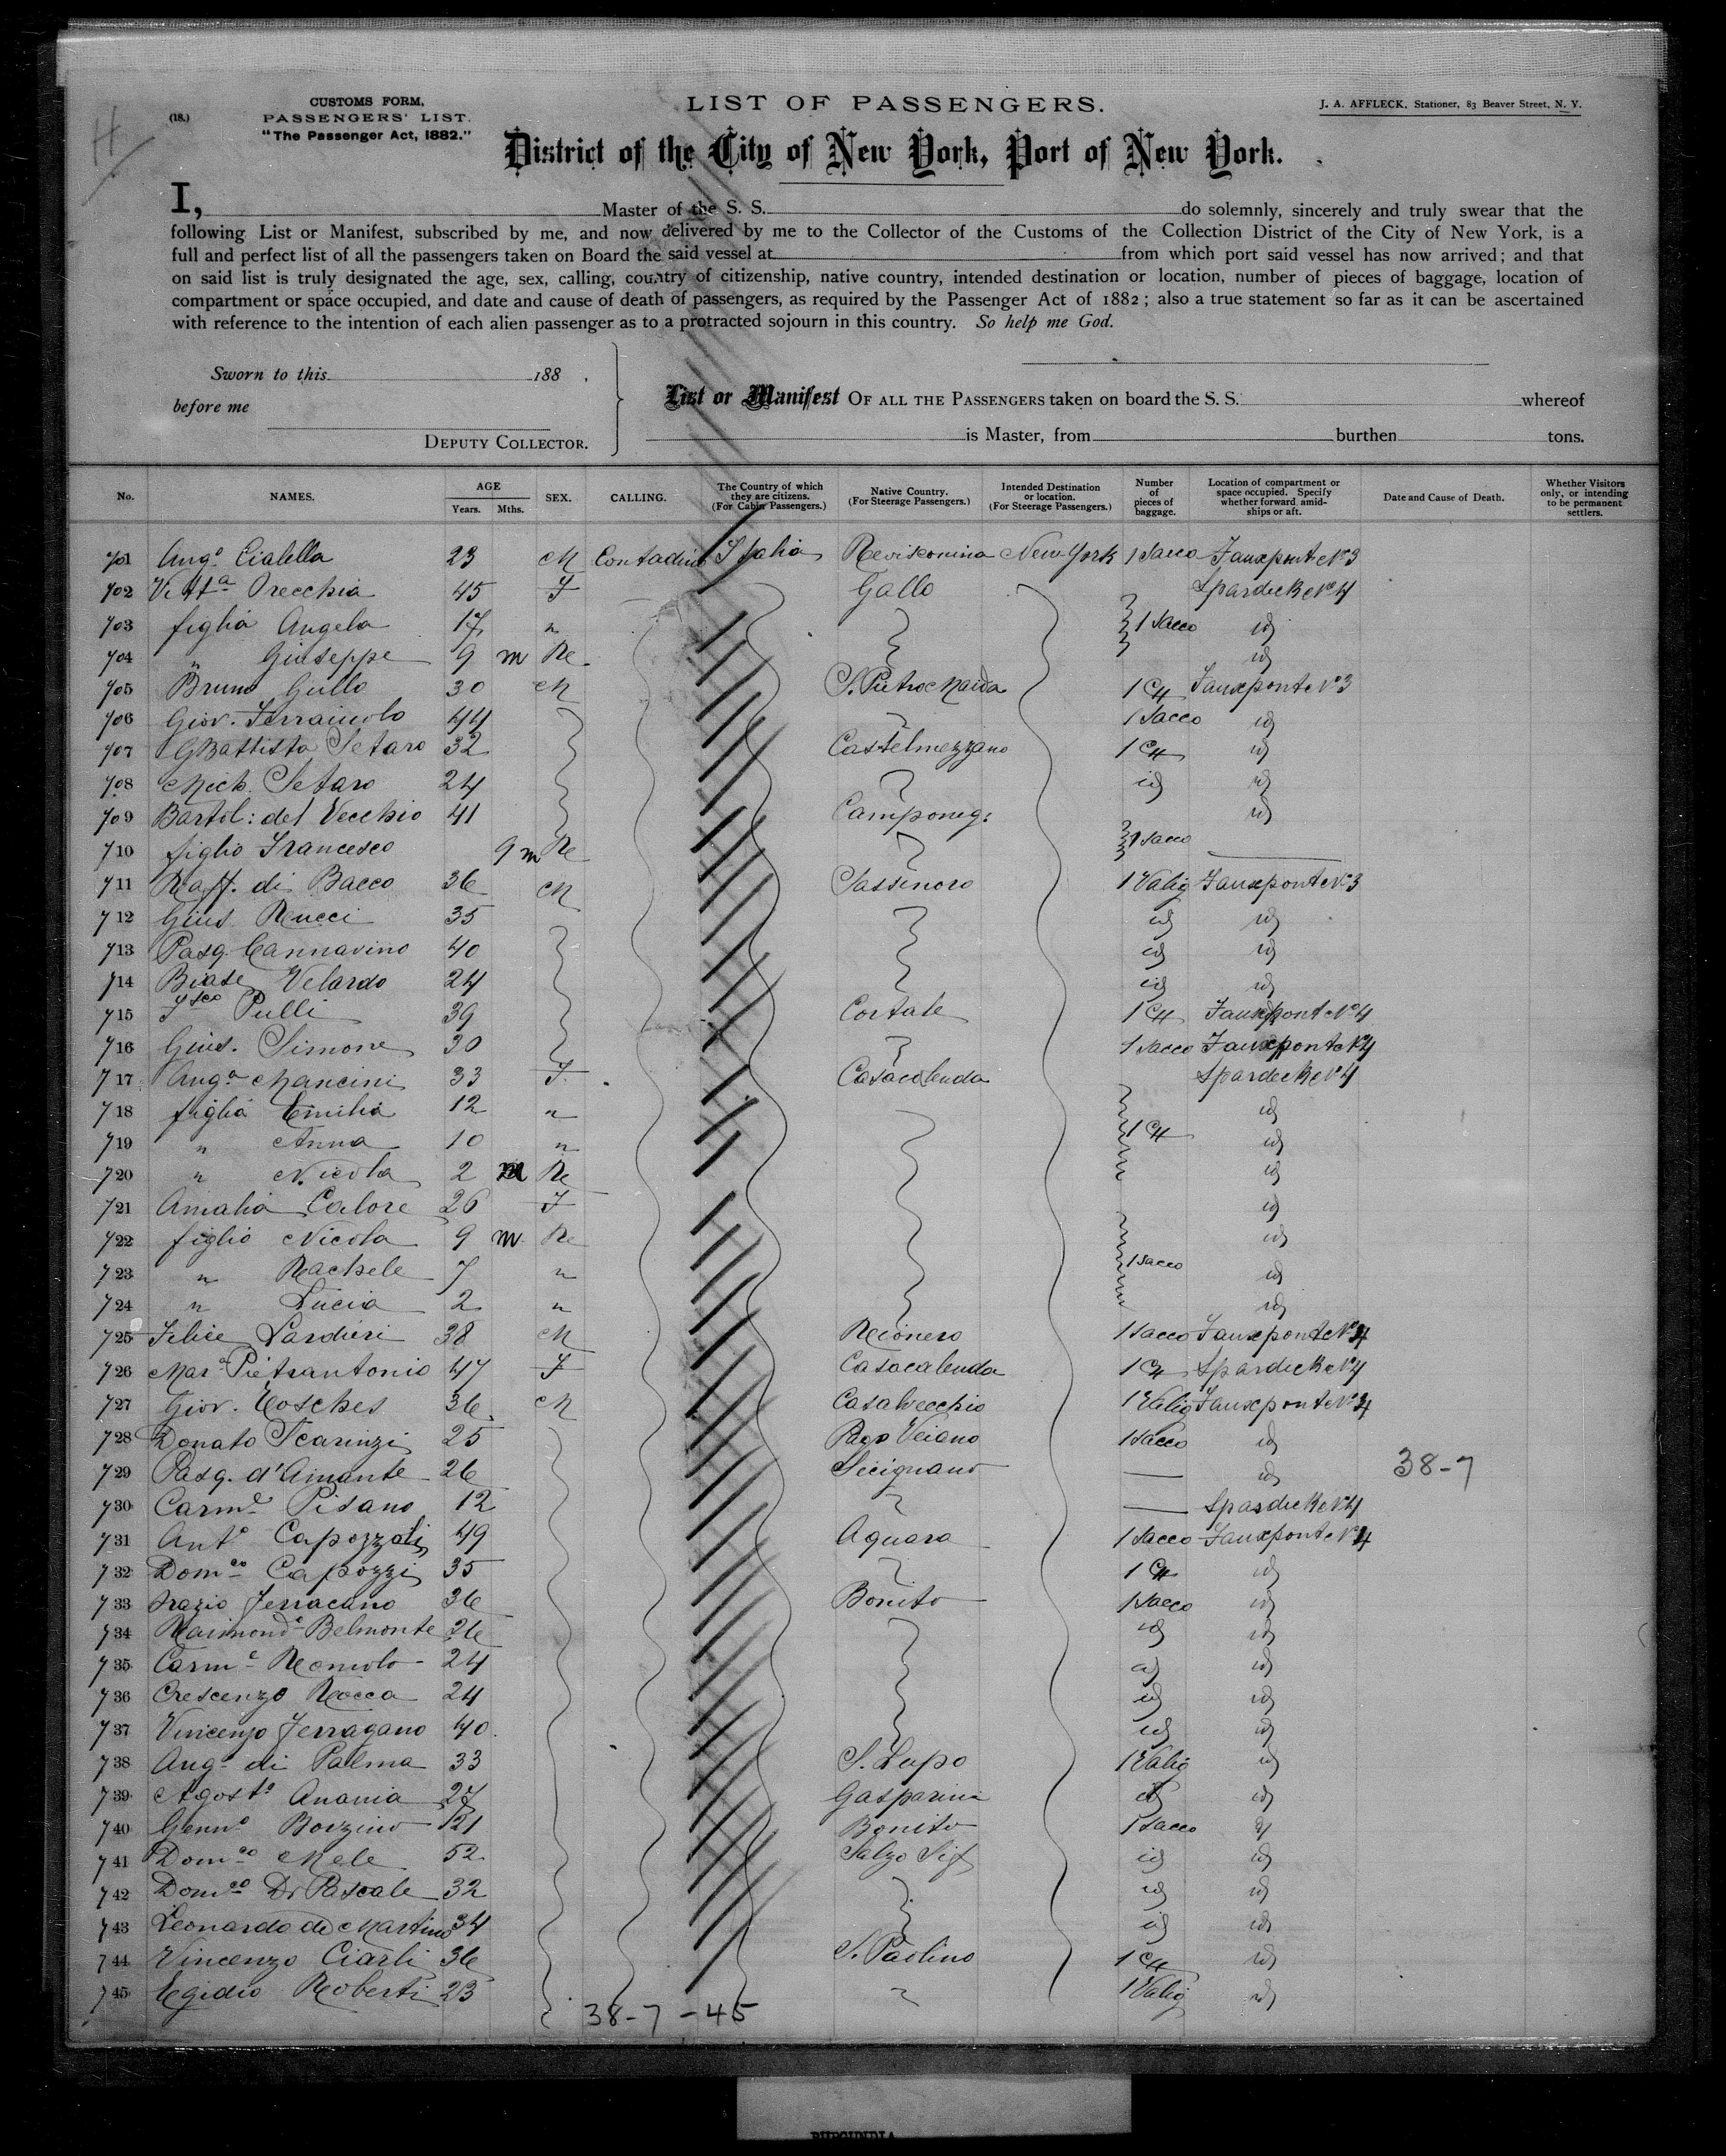 H
(18.)
CUSTOMS FORM,
PASSENGERS' LIST.
"The Passenger Act, 1882."
LIST OF PASSENGERS.
J. A. AFFLECK, Stationer, 83 Beaver Street, N. Y.
District of the City of New York, Port of New York.
I, Master of the S. S. do solemnly, sincerely and truly swear that the
following List or Manifest, subscribed by me, and now delivered by me to the Collector of the Customs of the Collection District of the City of New York, is a
full and perfect list of all the passengers taken on Board the said vessel at from which port said vessel has now arrived; and that
on said list is truly designated the age, sex, calling, country of citizenship, native country, intended destination or location, number of pieces of baggage, location of
compartment or space occupied, and date and cause of death of passengers, as required by the Passenger Act of 1882; also a true statement so far as it can be ascertained
with reference to the intention of each alien passenger as to a protracted sojourn in this country. So help me God.
Sworn to this 188 .
before me
DEPUTY COLLECTOR.
List or Manifest OF ALL THE PASSENGERS taken on board the S. S. whereof
is Master, from burthen tons.
No. NAMES. AGE Years. Mths. SEX. CALLING. The Country of which they are citizens. (For Cabin Passengers.) Native Country. (For Steerage Passengers.) Intended Destination or location. (For Steerage Passengers.) Number of pieces of baggage. Location of compartment or space occupied. Specify whether forward, amidships or aft. Date and Cause of Death. Whether Visitors only, or intending to be permanent settlers.
701 Ang.o Cialella 23 M Contadino Italia New York 1 Sacco No 3
702 Vitt.a Orecchia 45 F Gallo Spardeck No 4
703 figlia Angela 17 " 1 Sacco id
704 " Giuseppe 9 m Re id
705 Bruno Gullo 30 M S. Pietro Maida 1 Cª No 3
706 Giov. Ferraiuolo 44 1 Sacco id
707 G Battista Setaro 32 Castelmezzano 1 Cª id
708 Mich. Setaro 24 id id
709 Bartol: del Vecchio 41 Camponeg: id
710 figlio Francesco 9 m Re 1 Sacco
711 Raff. di Bacco 36 M Sassinoro 1 Valig No 3
712 Gius. Reucci 35 id id
713 Pasq. Cannavino 40 id id
714 Biase Velardo 24 id id
715 F.sco Pulli 39 Cortale 1 Cª No 4
716 Gius. Simone 30 1 Sacco No 4
717 Ang.a Mancini 33 F. Casacalenda Spardeck No 4
718 figlia Emilia 12 " id
719 " Anna 10 " 1 Cª id
720 " Nicola 2 m Re id
721 Amalia Calore 26 F id
722 figlio Nicola 9 m Re id
723 " Rachele 7 " 1 Sacco id
724 " Lucia 2 " id
725 Felice Lardieri 38 M Rionero 1 Sacco No 4
726 Mar.a Pietrantonio 47 F Casacalenda 1 Cª Spardeck No 4
727 Giov. Tosches 36 M Casalvecchio 1 Valig No 4
728 Donato Scarinzi 25 Pago Veiano 1 Sacco id
729 Pasq. d'Amante 26 Sicignano — id 38-7
730 Carm.e Pisano 12 — Spardeck No 4
731 Ant.o Capozzoli 49 Aquara 1 Sacco No 4
732 Dom.co Capozzi 35 1 Cª id
733 Orazio Ferracano 36 Bonito 1 Sacco id
734 Raimond.o Belmonte 26 id id
735 Carm.e Romolo 24 id id
736 Crescenzo Rocca 24 id id
737 Vincenzo Ferragano 40 id id
738 Ang.o di Palma 33 S. Lupo 1 Valig id
739 Agost.o Anania 27 Gasparina id id
740 Genn.o Borzino 21 Bonito 1 Sacco id
741 Dom.co Mele 52 id id
742 Dom.co Di Pascale 32 id id
743 Leonardo de Martino 34 id id
744 Vincenzo Ciarli 36 S. Paolino 1 Cª id
745 Egidio Roberti 23 1 Valig id
38-7-45